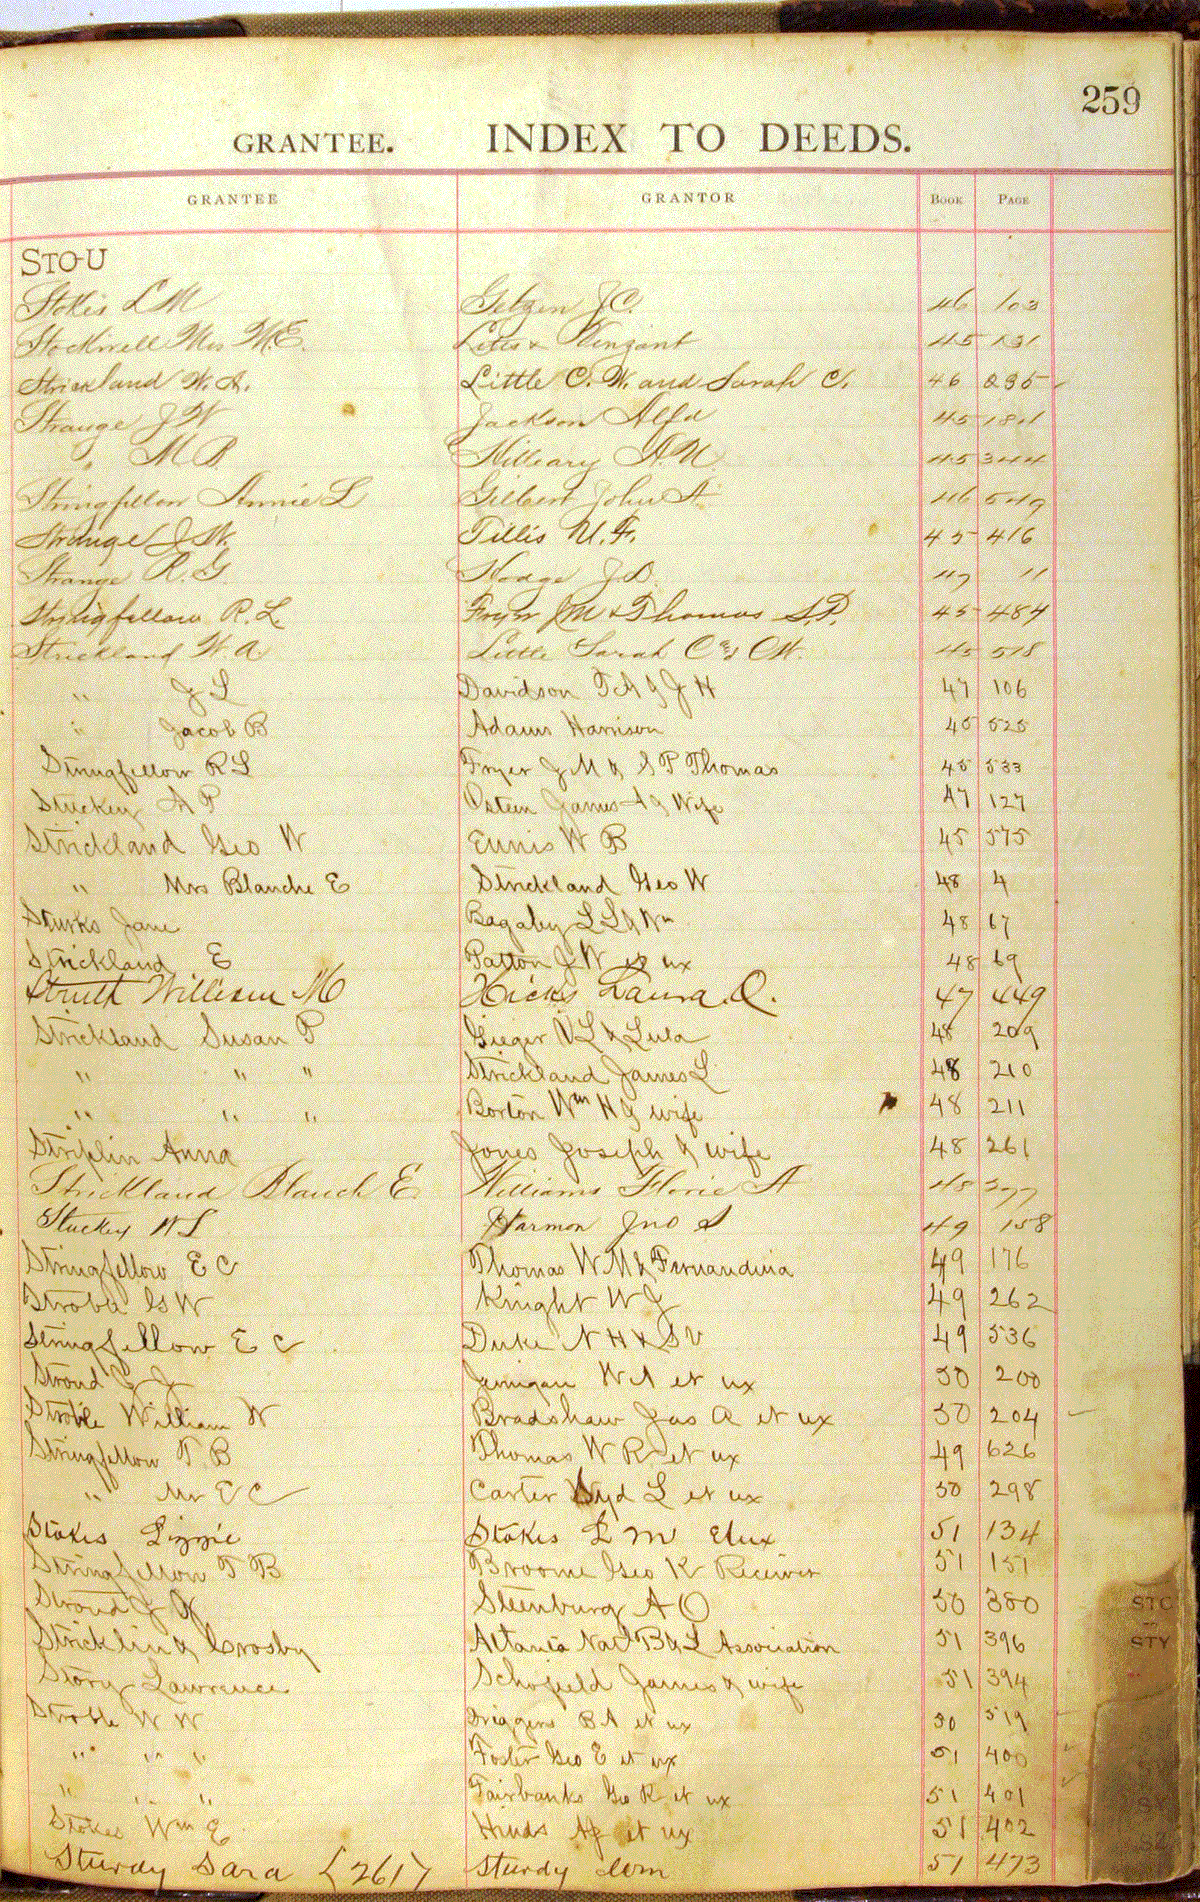 259
GRANTEE. INDEX TO DEEDS.
GRANTEE GRANTOR BOOK PAGE
STO-U
Stokes L M J C. 46 103
Stockwell Mrs M.E. Litts & Wingant 45 131
Strickland W. A. Little C. W. and Sarah C. 46 235
Strange J W Jackson Alfd 45 181
" M B Hilleary 45 344
Stringfellow Annie L Gilbert John A 46 549
Strange J. W. Tillis U. F. 45 416
Strange R. G Hodge J D. 47 11
Stringfellow R. L Fryer J M & Thomas S. P. 45 484
Strickland W. A Little Sarah C & C W. 45 518
" J L Davidson T A & J H 47 106
" Jacob B Adams Harrison 45 525
Stringfellow R L Fryer J M & S P Thomas 45 533
Stuckey A P Osteen James A & Wife 47 127
Strickland Geo W Ennis W B 45 575
" Mrs Blanche E Strickland Geo W 48 4
Sturks Jane Bagaby L L & Wm 48 67
Strickland E Patton J W et ux 48 69
Struth William M Hicks Laura. Q. 47 449
Strickland Susan P Gieger V L & Lula 48 209
" " " Strickland James L 48 210
" " " Borton Wm H & wife 48 211
Striplin Anna Jones Joseph & wife 48 261
Strickland Blanch E Williams Florie A 48 377
Stuckey W L Harmon Jno S 49 158
Stringfellow E C Thomas W M & Fernandina 49 176
Stroble G W Knight W J 49 262
Stringfellow E C Duke N H & S V 49 536
Stroud J Jernigan W A et ux 50 200
Stroble William W Bradshaw Jas A et ux 50 204
Stringfellow T. B Thomas W R et ux 49 626
" Mr E C Carter Syd L et ux 50 298
Stokes Lizzie Stokes L M Etux 51 134
Stringfellow T B Broome Geo K Receiver 51 151
Stroud J Steenburg A O 50 380
Stricklin & Crosby Atlanta Natl B & L Association 51 396
Story Lawrence Schofield James & wife 51 394
Stroble W W Driggers B A et ux 50 519
" " " Foster Geo E et ux 51 400
" " " Fairbanks Geo R et ux 51 401
Stokes Wm E Hinds et ux 51 402
Sturdy Sara (261) Sturdy 51 473
STC
STY